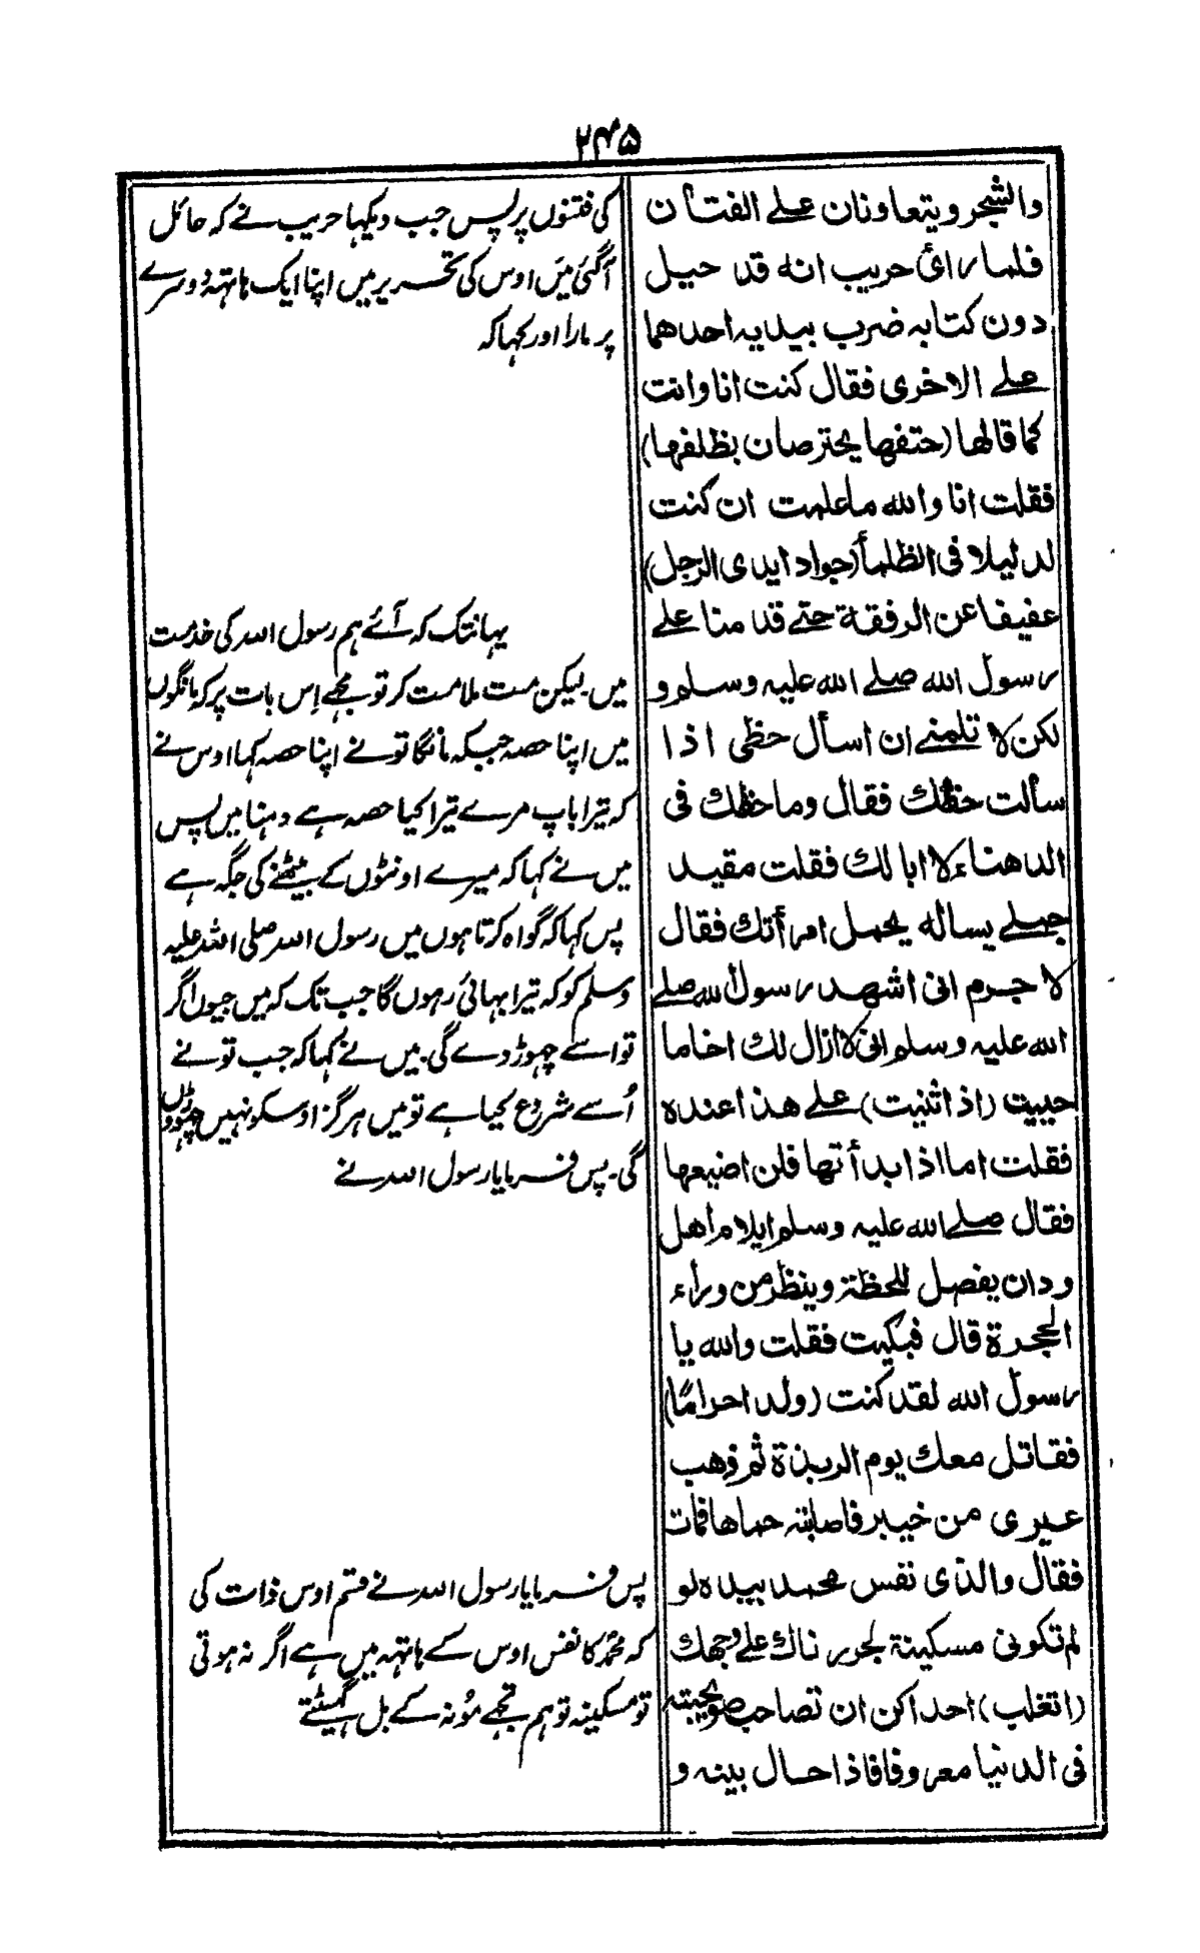 ۲۴۵
والشجر ويتعاونان على الفتان
فلما رأى حريب انه قد حيل
دون كتابه ضرب بيديه احدهما
على الاخرى فقال كنت انا وانت
كما قالها (حتفها يحترصان بظلفها)
فقلت انا والله ما علمت ان كنت
لدليلا فى الظلمأ (جواد ايدى الرجل)
عفيفا عن الرفقة حتى قدمنا على
رسول الله صلى الله عليه وسلم و
لكن لا تلمنى ان اسأل حظى اذا
سألت حظك فقال وما حظك فى
الدهناء لا ابا لك فقلت مقيد
جملى يساله يحمل امرأتك فقال
لا جرم انى اشهد رسول الله صلى
الله عليه وسلم انى لا ازال لك اخا ما
حييت (اذ اثنيت) على هذا عنده
فقلت اما اذا بدأتها فلن اضيعها
فقال صلى الله عليه وسلم ايلام اهل
ودان يفصل للحظة وينظر من وراء
الحجرة قال فبكيت فقلت والله يا
رسول الله لقد كنت (ولد احراما)
فقاتل معك يوم الربذة ثم ذهب
عيرى من خيبر فاصابته حماها فمات
فقال والذى نفس محمد بيده لو
لم تكونى مسكينة لجررناك على وجهك
(اتغلب) احداكن ان تصاحب صويحبته
فى الدنيا معروفا فاذا حال بينه و
کی فتنوں پر پس جب دیکہا حریب نے کہ حائل
آگئی میں اوس کی تحریر میں اپنا ایک ہاتہہ دوسرے
پر مارا اور کہا کہ
یہانتک کہ آئے ہم رسول اللہ کی خدمت
میں۔ لیکن مت ملامت کر تو مجھے اِس بات پر کہ مانگوں
میں اپنا حصہ جبکہ مانگا تو نے اپنا حصہ کہا اوس نے
کہ تیرا باپ مرے تیرا کیا حصہ ہے دہنا میں پس
میں نے کہا کہ میرے اونٹوں کے بیٹھنے کی جگہ ہے
پس کہا کہ گواہ کرتا ہوں میں رسول اللہ صلی اللہ علیہ
وسلم کو کہ تیرا بہائی رہوں گا جب تک کہ میں جیوں اگر
تو اسے چہوڑ دے گی۔ میں نے کہا کہ جب تو نے
اُسے شروع کیا ہے تو میں ہرگز اوسکو نہیں چہوڑوں
گی۔ پس فرمایا رسول اللہ نے
پس فرمایا رسول اللہ نے قسم اوس ذات کی
کہ محمدؐ کا نفس اوس کے ہاتہہ میں ہے اگر نہ ہوتی
تو مسکینہ تو ہم تجھے مُونہ کے بل گھسیٹتے